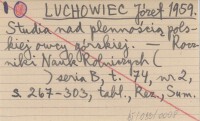 LUCHOWIEC Józef 1959.
Studia nad plennością pols-
kiej owcy górskiej. — Rocz-
niki Nauk Rolniczych (
) seria B, t. 74, nr 2,
s. 267-303, tabl., Rez., Sum.